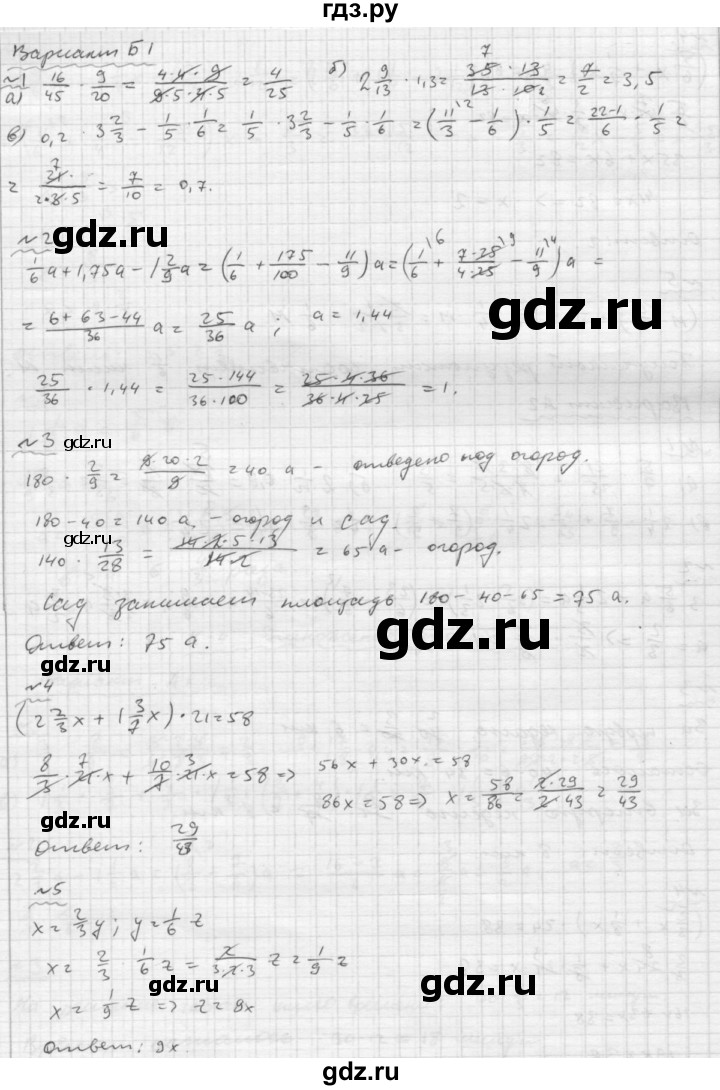 гдз.ру
Вариант Б1
№1
а) 16/45 · 9/20 = (4·4·9)/(9·5·4·5) = 4/25 б) 2 9/13 · 1,3 = (35·13)/(13·10) = 7/2 = 3,5
в) 0,2 · 3 2/3 − 1/5 · 1/6 = 1/5 · 3 2/3 − 1/5 · 1/6 = (11/3 − 1/6) · 1/5 = (22−1)/6 · 1/5 =
= 21/(2·3·5) = 7/10 = 0,7.
gdz.ru
№2
1/6 a + 1,75a − 1 2/9 a = (1/6 + 175/100 − 11/9) a = (1/6 + (7·25)/(4·25) − 11/9) a =
gdz.ru
= (6+63−44)/36 a = 25/36 a ; a = 1,44
25/36 · 1,44 = (25·144)/(36·100) = (25·4·36)/(36·4·25) = 1.
gdz.ru
№3
180 · 2/9 = (9·20·2)/9 = 40 а – отведено под огород.
180 − 40 = 140 а. – огород и сад.
gdz.ru
140 · 13/28 = (14·2·5·13)/(14·2) = 65 а – огород.
Сад занимает площадь 180 − 40 − 65 = 75 а.
gdz.ru
Ответ: 75 а.
gdz.ru
№4
(2 2/3 x + 1 3/7 x) · 21 = 58
8/3 · 21 · x + 10/7 · 21 · x = 58 => 56x + 30x = 58
86x = 58 => x = 58/86 = (2·29)/(2·43) = 29/43
gdz.ru
Ответ: 29/43
№5
x = 2/3 y ; y = 1/6 z
x = 2/3 · 1/6 z = 2/(3·2·3) z = 1/9 z
gdz.ru
x = 1/9 z => z = 9x
Ответ: 9x.
gdz.ru